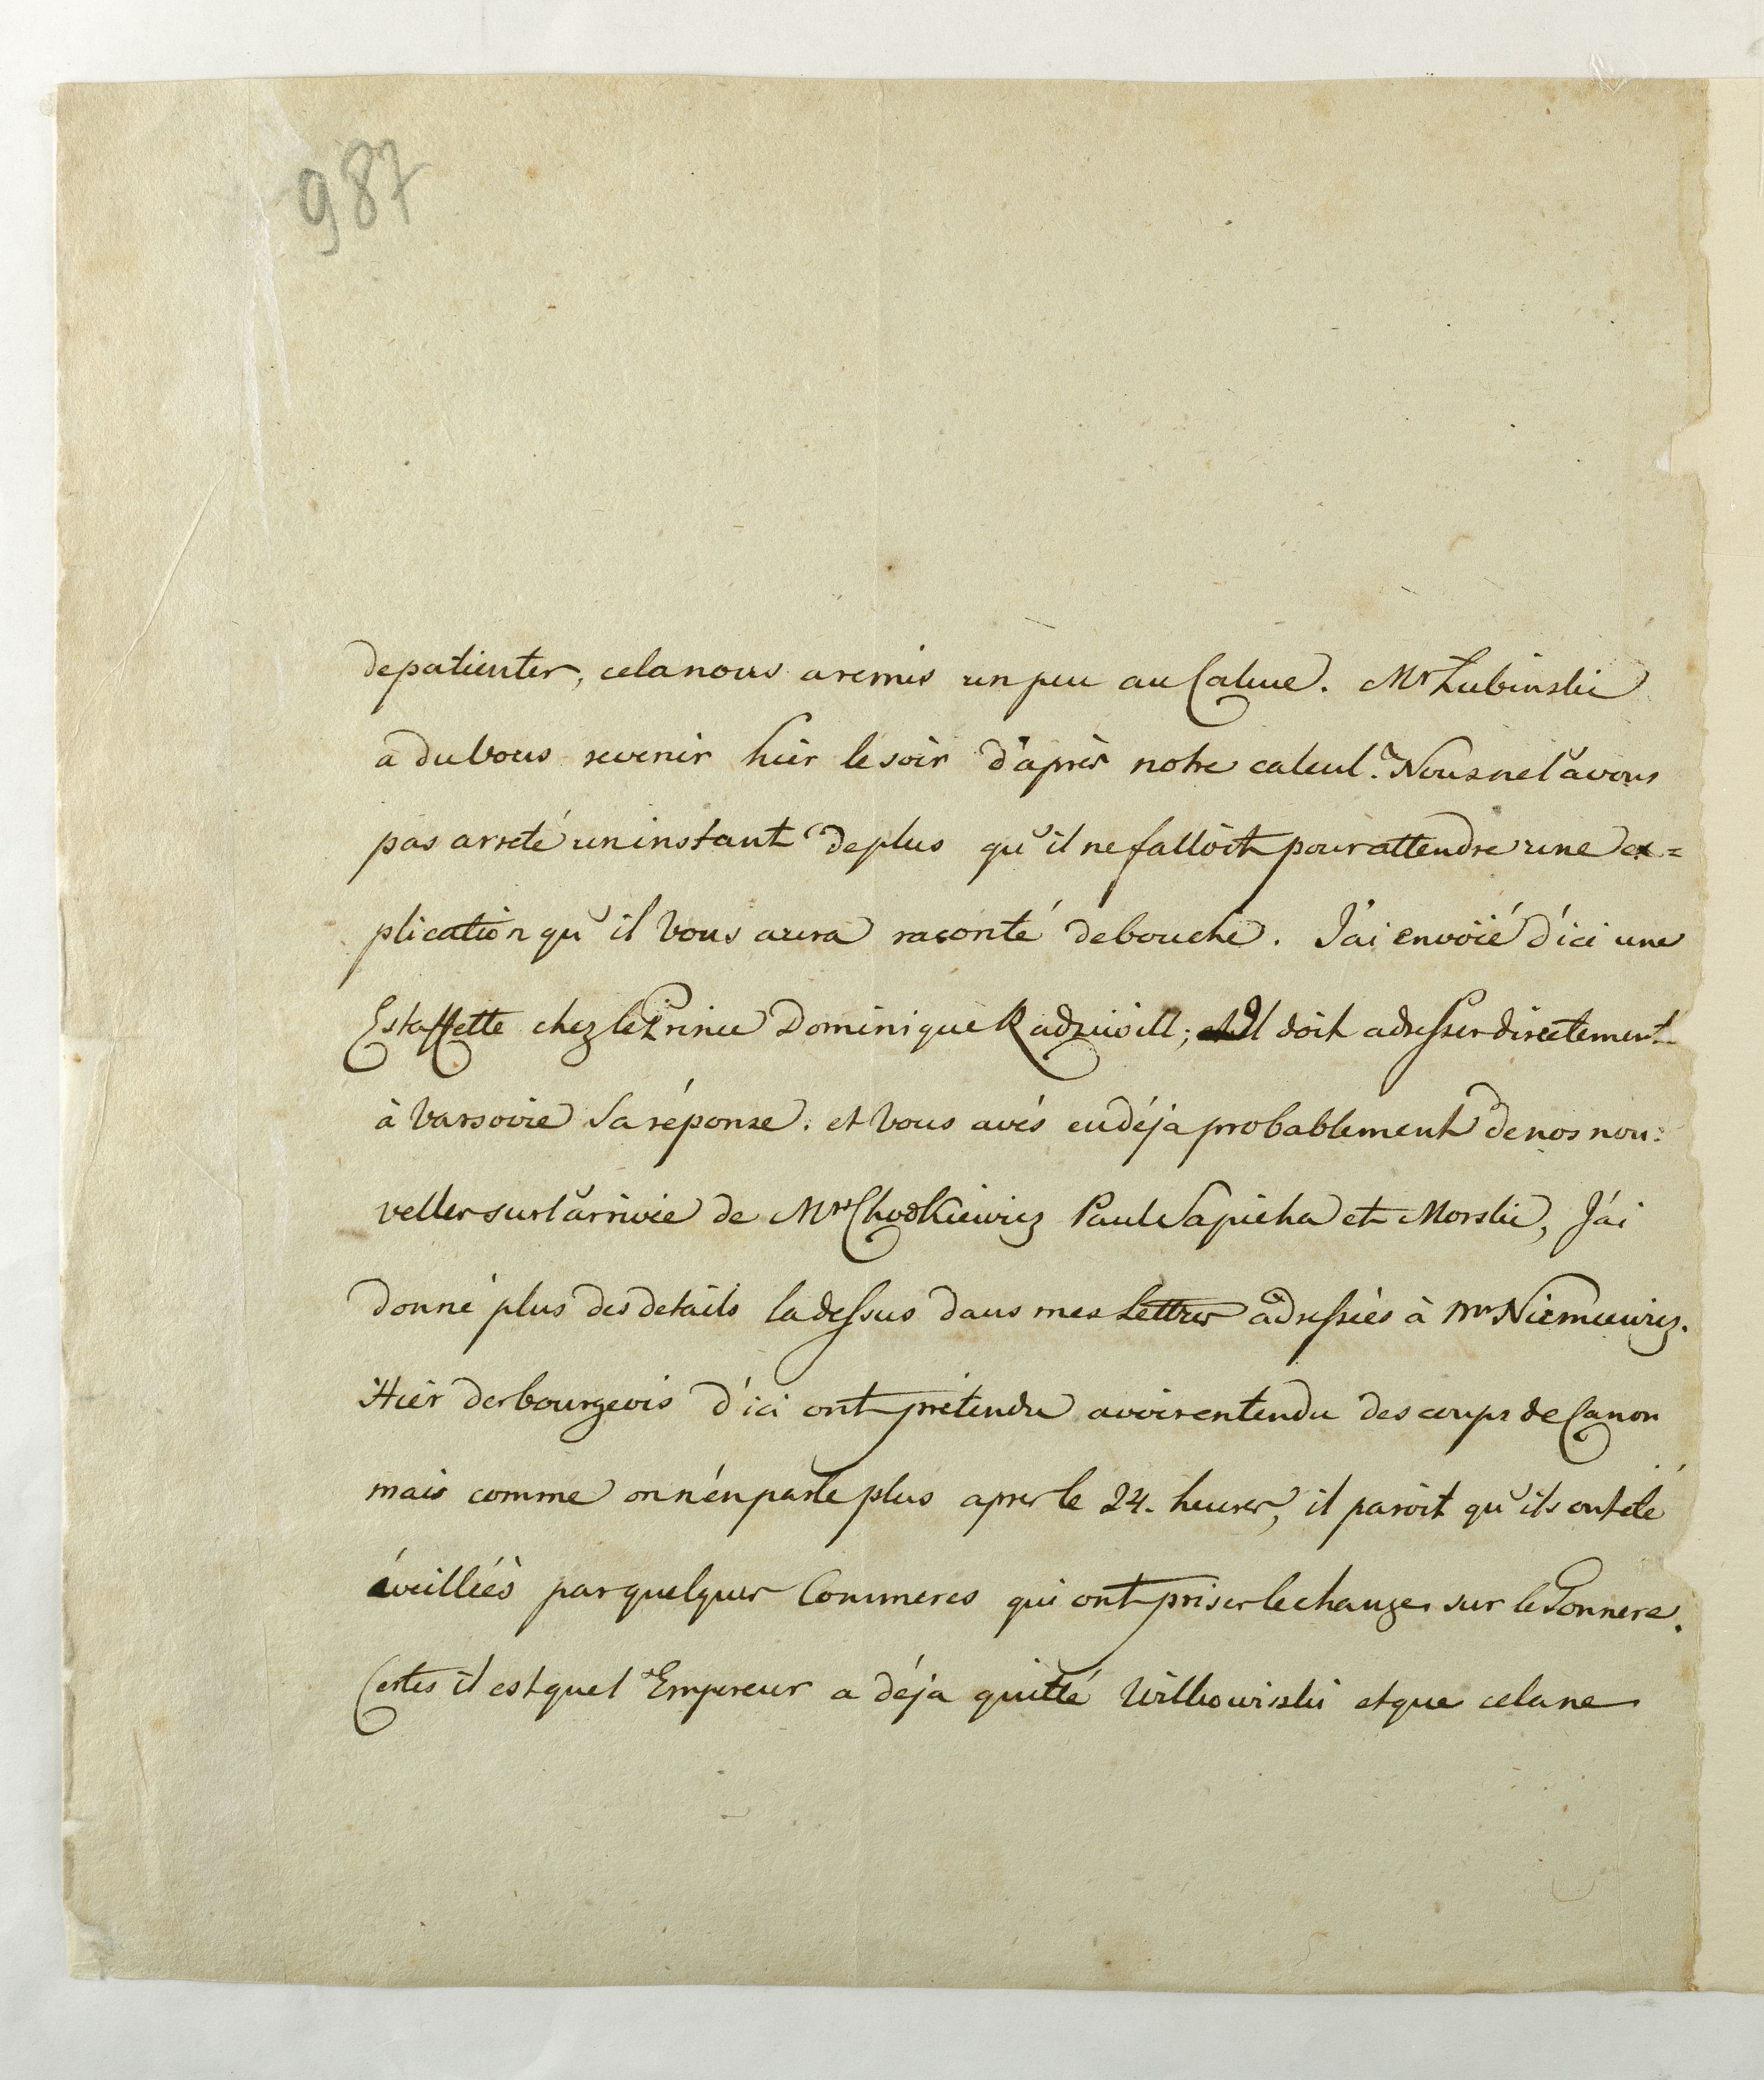 987
de patienter, cela nous a remis un peu au Calme. Mr Łubinski
a du vous revenir hier le soir d'après notre calcul. Nous ne l'avons
pas arreté un instant de plus qu'il ne falloit pour attendre une ex=
plication qu'il vous aura raconté de bouche. J'ai envoïé d'ici une
Estaffette chez le Prince Dominique Radziwill; Il doit adresser directement
à Varsovie sa réponse. et vous avés eu déja probablement de nos nou:
velles sur l'arrivée de Mrs Chodkiewicz Paul Sapieha et Morski, J'ai
donné plus des details la dessus dans mes Lettres adressées à Mr Niemcewicz.
Hier des bourgeois d'ici ont prétendu avoir entendu des coups de Canon
mais comme on n'en parle plus apres le 24. heures, il paroit qu'ils ont été
éveilléés par quelques Commeres qui ont prises le change sur le Tonnere.
Certes il est que l'Empereur a déja quitté Wilkowiski et que cela ne